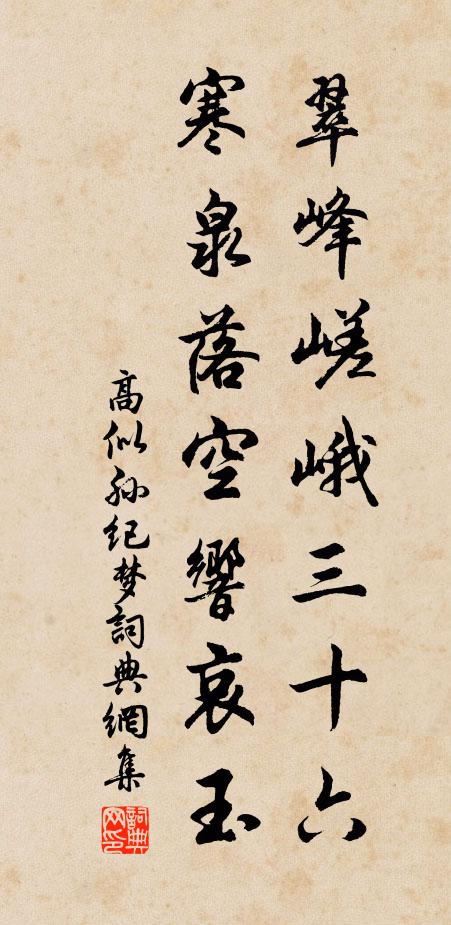 翠峰嵯峨三十六
寒泉落空響哀玉
高似孙纪梦詞典網集
詞典网印